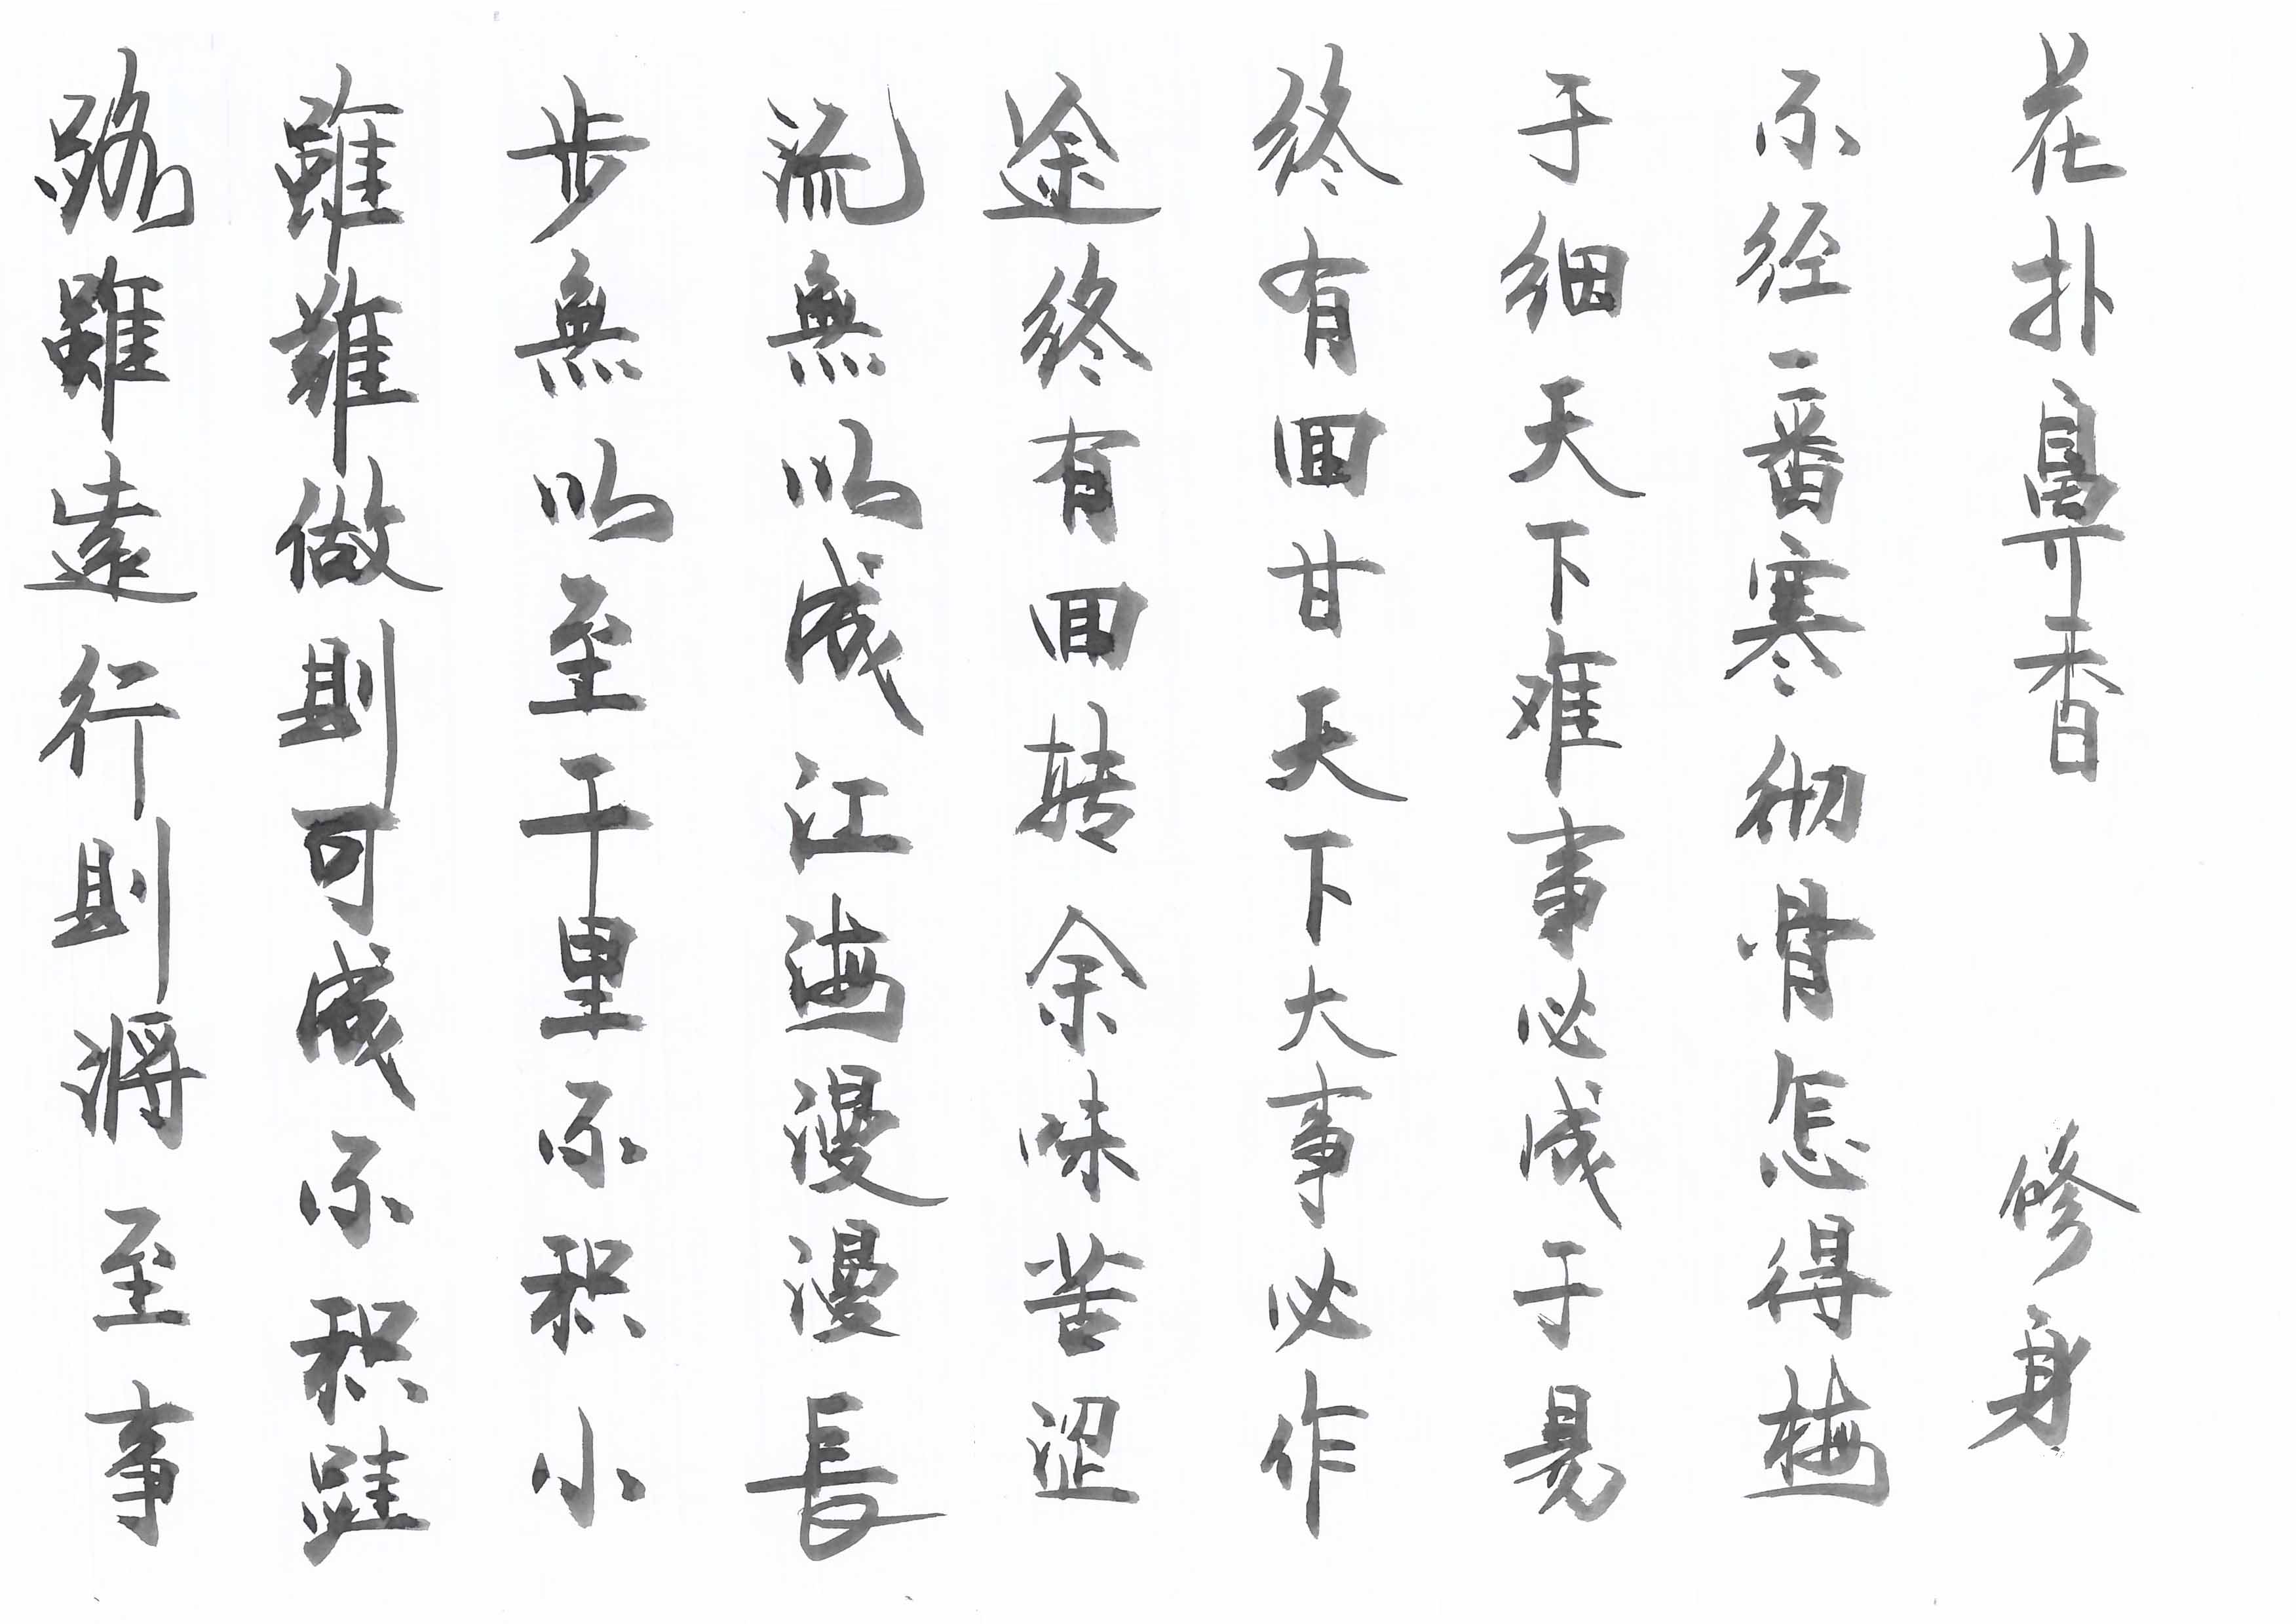 路雖遠行則将至事
雖難做則可成不积跬
步無以至千里不积小
流無以成江海漫漫長
途终有回转余味苦涩
终有回甘天下大事必作
于细天下难事必成于易
不经一番寒彻骨怎得梅
花扑鼻香 修身